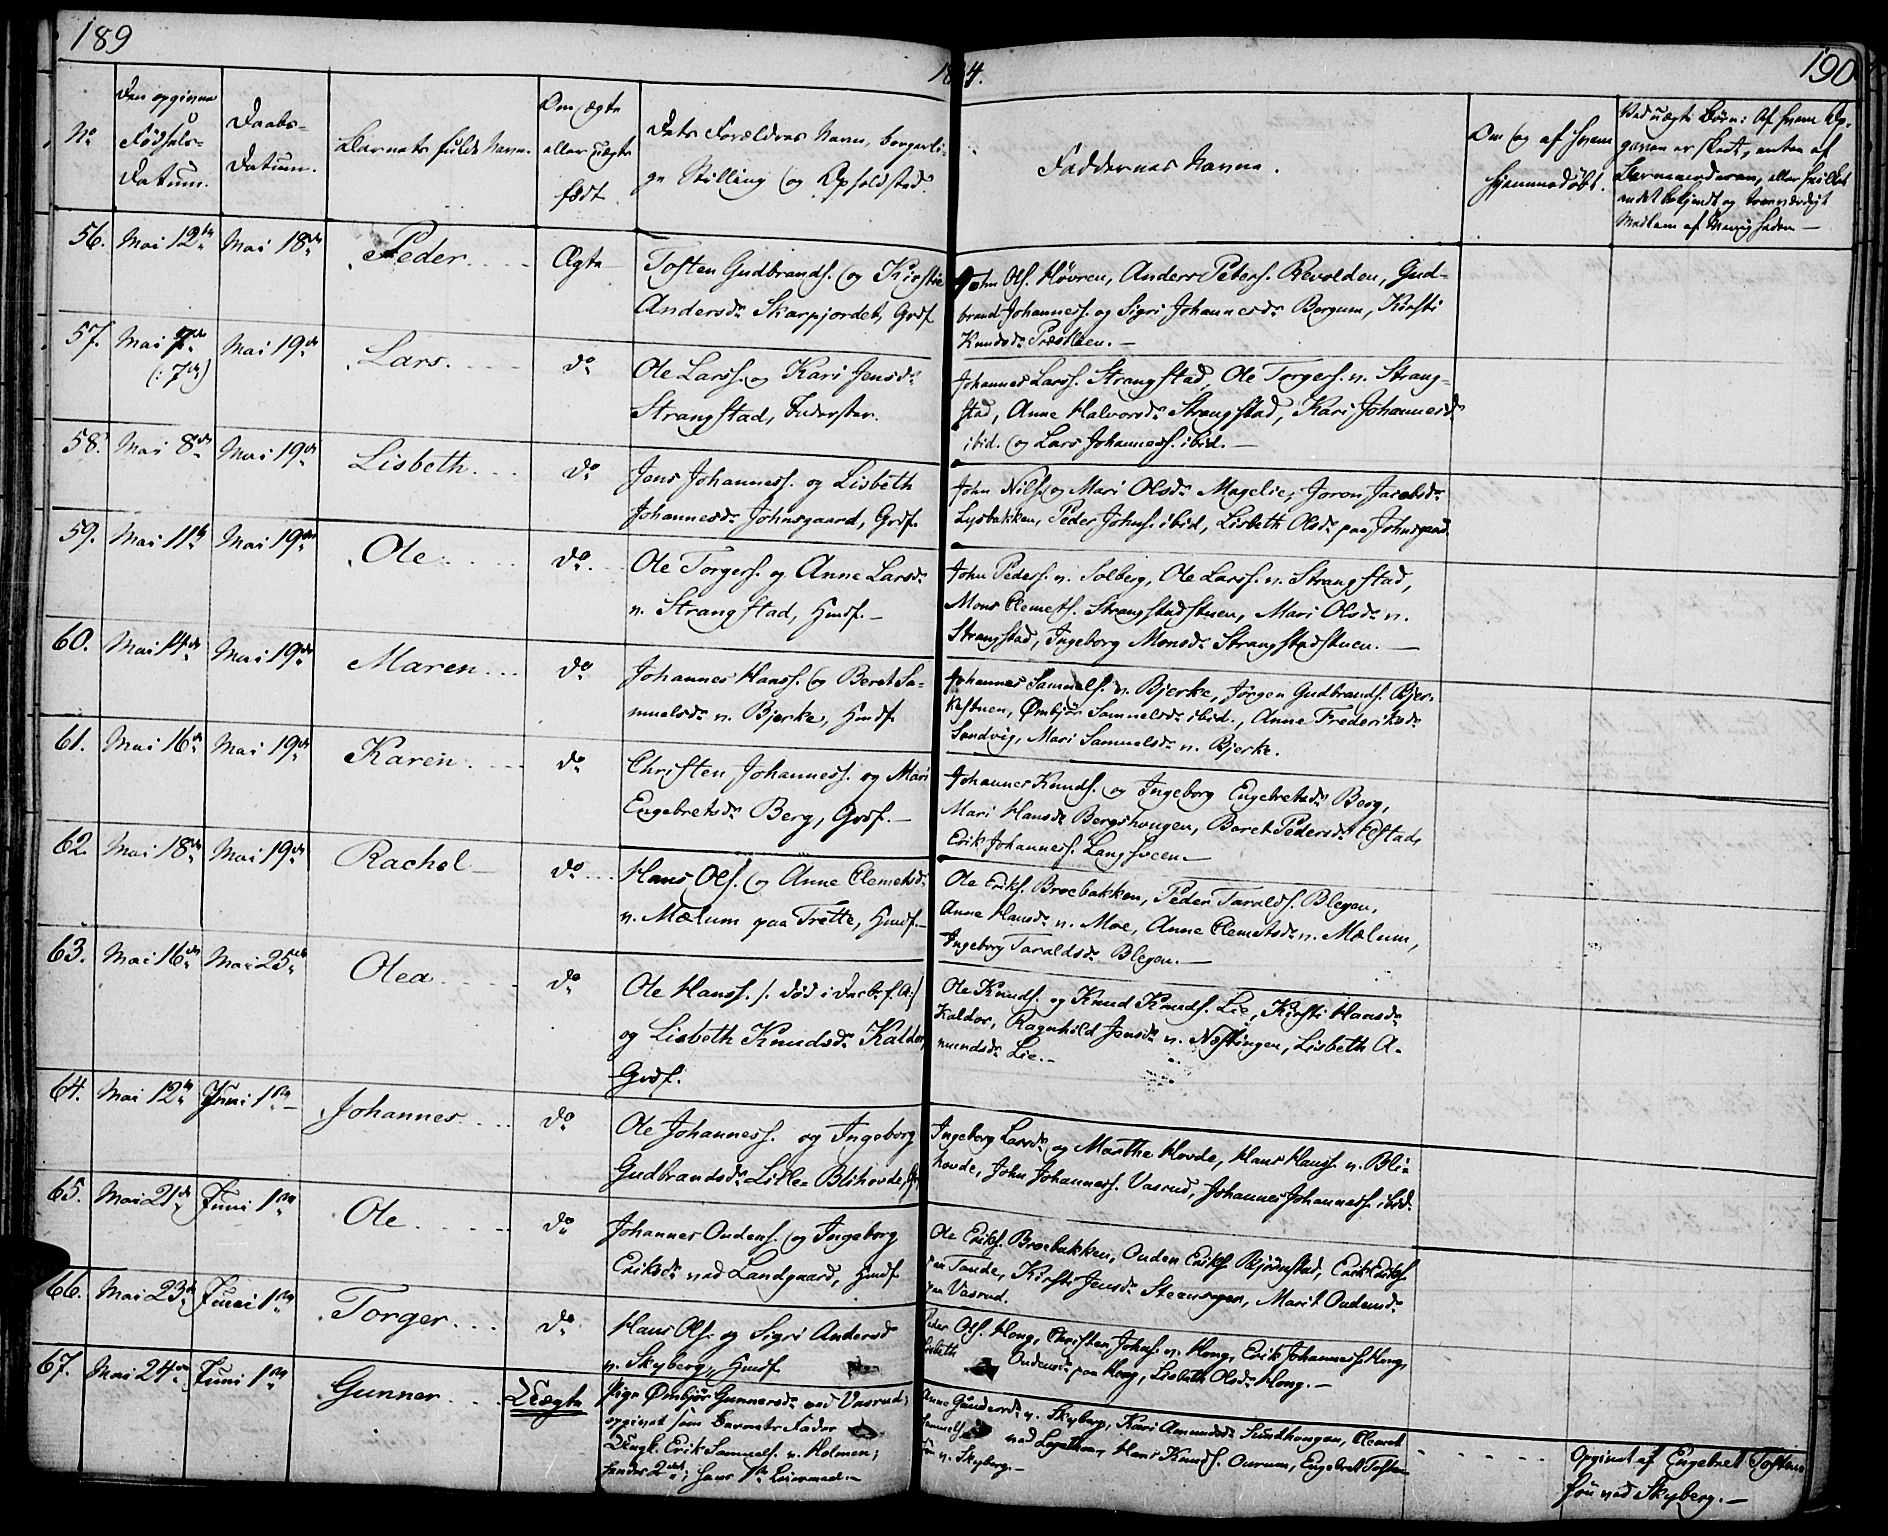 189
18 4.
190
No
Den opgivne Fødsels-Datum.
Daabs-Datum.
Barnets fulde Navn.
Om ægte eller uægte født.
Dets Forældres Navn, borgerli-
ge Stilling og Opholdsted.
Faddernes Navne.
Om og af hvem hjemmedøbt.
Ved uægte Børn: Af hvem Op-
gaven er skeet, enten af
Barnemoderen, eller hvilket
andet bekjendt og troværdigt
Medlem af Menigheden —
56. Mai 12te Mai 18de Peder Ægte Tosten Gudbrands. og Kirstie
Andersdr Skarpjordet, Grdf.
John Ols. Høvren, Anders Peders. Revolden, Gud-
brand Johanness. og Sigri Johannesdr Bergum, Kirsti
Knudsdr Præstløen. —
57. Mai 7de (: 7de) Mai 19de Lars. do Ole Larss. og Kari Jensdr
Strangstad, Inderster.
Johannes Larss. Strangstad, Ole Torgers. n. Strang-
stad, Anne Halvorsdr Strangstad, Kari Johannesdr
ibid. og Lars Johanness. ibid. —
58. Mai 8de Mai 19de Lisbeth. do Jens Johanness. og Lisbeth
Johannesdr Johnsgaard, Grdf.
John Nils. og Mari Olsdr Magelie, Joron Jacobsdr
Lysbakken, Peder Johns. ibid, Lisbeth Olsdr paa Johnsgaard.
59. Mai 11te Mai 19de Ole. do Ole Torgers. og Anne Larsdr
n. Strangstad, Hmdf. —
John Peders. n. Solberg, Ole Larss. n. Strangstad,
Mons Clemets. Strangstadstuen, Mari Olsdr n.
Strangstad, Ingeborg Monsdr Strangstadstuen. —
60. Mai 14de Mai 19de Maren do Johannes Hanss. og Beret Sa-
muelsdr n. Bjerke, Hmdf.
Johannes Samuels. n. Bjerke, Jørgen Gudbrands. Bjer-
kestuen, Ømbjør Samuelsdr ibid., Anne Frederiksdr
Sandvig, Mari Samuelsdr n. Bjerke.
61. Mai 16de Mai 19de Karen. do Christen Johanness. og Mari
Engebretsdr Berg, Grdf. —
Johannes Knuds. og Ingeborg Engebretsdr Berg,
Mari Hansdr Bergshougen, Beret Pedersdr
Erik Johanness. Langsveen —
62. Mai 18de Mai 19de Rachel do Hans Ols. og Anne Clemetsdr
n. Mælum paa Trette, Hmdf. —
Ole Eriks. Broebakken, Peder Taralds. Blegen,
Anne Hansdr n. Moe, Anne Clemetsdr n. Mælum,
Ingeborg Taraldsdr Blegen. —
63. Mai 16de Mai 25de Olea do Ole Hanss. /: død i f. A:/
og Lisbeth Knudsdr Kaldor,
Grdf.
Ole Knuds. og Knud Knuds. Lie, Kirsti Hansdr
Kaldor, Ragnhild Jensdr n. Næstingen, Lisbeth A-
mundsdr Lie. —
64. Mai 12te Juni 1ste Johannes do Ole Johanness. og Ingeborg
Gudbrandsdr Lille Blihovde,
Ingeborg Larsdr og Marthe Hovde, Hans Hanss. n. Bli-
hovde, John Johanness. Vasrud, Johannes Johanness. ibid.
65. Mai 21de Juni 1ste Ole do Johannes Oudens. og Ingeborg
Eriksdr ved Landgaard, Hmdf.
Ole Eriks. Broebakken, Ouden Eriks. Bjørnstad, Erik Eriks.
paa Tande, Kirsti Jensdr, Marit Oudensdr
paa Vasrud.
66. Mai 23de Juni 1ste Torger do Hans Ols. og Sigri Andersd
n. Skyberg, Hmdf.
Peder Ols. Hong, Christen Johns. n. Hong, Erik Johanness. Hong,
Lisbeth Oudensdr paa Hong, Lisbeth Olsdr Hong. —
67. Mai 24de Juni 1ste Gunner Uægte Pige Ømbjør Gunnersdr ved Vasrud;
opgivet som Barnets Fader
Ungk. Erik Samuels. n. Holmen;
hendes 2det, hans 1ste Leiermaal —
Anne n. Skyberg, Kari Amundsdr Sundhougen, Clemet
Samuels. ved, Hans Knuds. Ourum, Engebret Tosten-
søn n. Skyberg. —
Opgivet af Engebret Tosten-
søn ved Skyberg. —